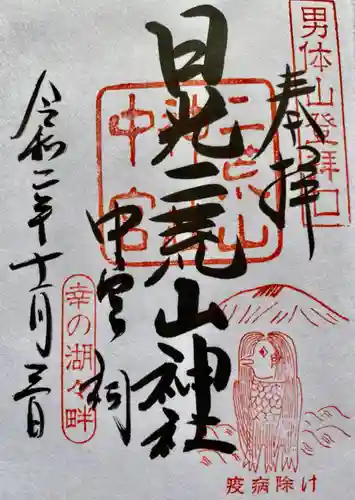 男体山登拝口
奉拝
日光二荒山神社
中宮祠
二荒山
神社
中宮
令和二年十一月三日
幸の湖々畔
疫病除け